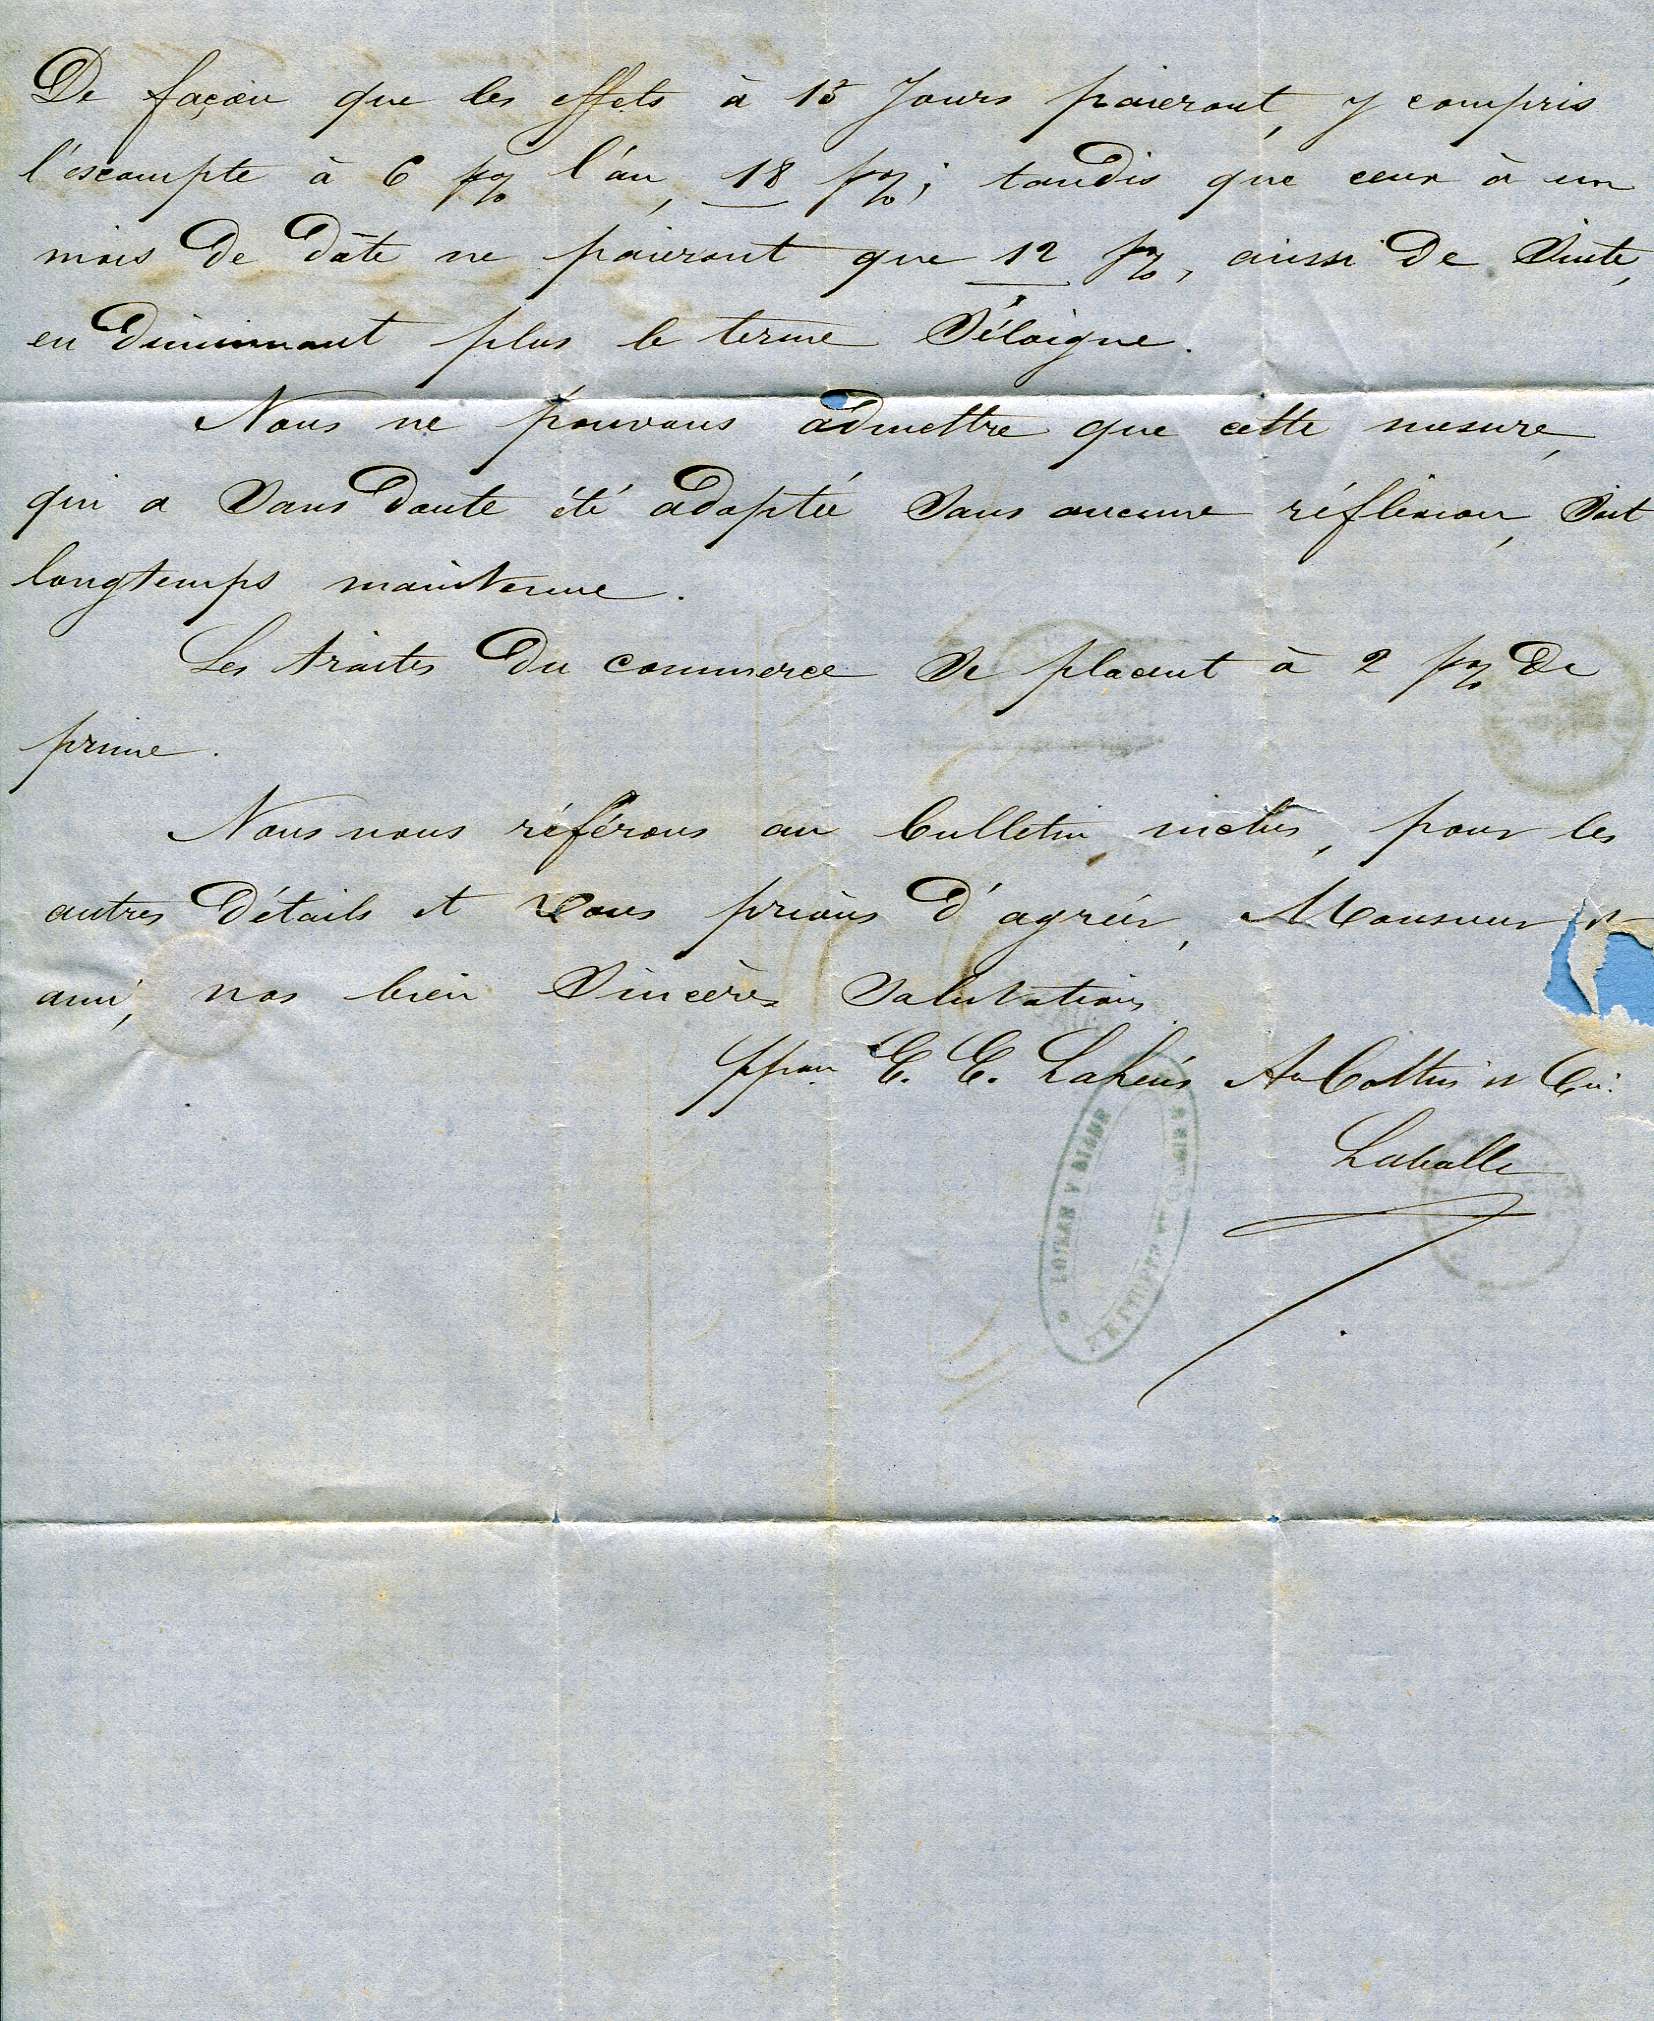 De façon que les effets à 15 Jours paieront, y compris
l'escompte à 6 p% l'an, 18 p%; tandis que ceux à un
mois de date ne paieront que 12 p%, ainsi de suite,
en diminuant plus le terme s'éloigne.
Nous ne pouvons admettre que cette mesure,
qui a sans doute été adoptée sans aucune réflexion, soit
longtemps maintenue.
Les traites du commerce se placent à 2 p% de
prime.
Nous nous référons au bulletin inclus, pour les
autres détails et vous prions d'agréer, Monsieur et
ami, nos bien sincères salutations
ppon E. E.